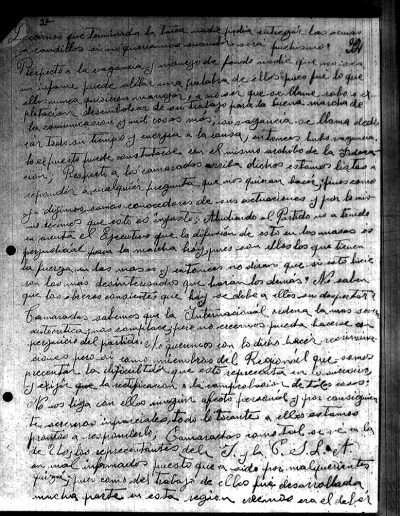 22
Decimos que terminada la tarea nadie podía entregar las armas
a caudillos si no queríamos
Respecto a la vagancia y manejo de fondo nadie que no sea
un infame puede hablar una palabra de ellos pues fué lo que
ellos nunca quisieron manejar, a no ser que se llame robo o ex
plotación desembolsar de su trabajo para la buena marcha de
la comunicación y mil cosas más, o vagancia se llama dedi
car todo su tiempo y energía a la causa, entonces hubo vagancia,
lo expuesto puede constatarse con el mismo archibo de la Federa
ción; Respecto a los camaradas arriba dichos estamos listos a
responder a cualquier pregunta que nos quieran hacer, pues como
ya dijimos somos conocedores de sus actuaciones y por lo mis
mo decimos que esto es injusto. Aludiendo al Partido no a tenido
en cuenta el Ejecutivo que la difusión de esto en las masas es
perjudicial para la marcha hoy, pues son ellos los que tienen
la fuerza en las masas y entonces no dirán que si esto hicie
ron los más desinteresados que harán los demás? No saben
que los obreros consientes que hay se debe a ellos su despertar?
Camaradas sabemos que la Internacional ordena la más seria
autocrítica, nos complace, pero no creemos pueda hacerse con
perjuicio del partido. No queremos con lo dicho hacer recrimina
ciones pero si como miembros del Regional que somos
presentar la dificultad que esto representa en lo sucesivo
y exigir que la rectificación o la comprobación de tales cosas.
No nos liga con ellos ningún afecto personal y por consiguien
te seremos imparciales, todo lo tocante a ellos estamos
prontos a responderlo. Camaradas como tal se ve en la
los representantes del S. y la C. S. L. A.
en mal informados puesto que a sido por malquerientes
quizá, pues como del trabajo de ellos fué desarrollada
mucha parte en esta región creemos era el deber